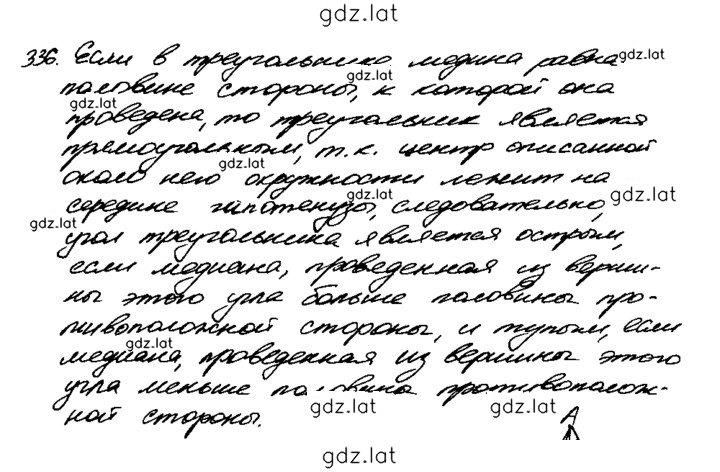 gdz.lat
336. Если в треугольнике медина равна gdz.lat
половине стороны, к которой она
gdz.lat gdz.lat
проведена, то треугольник является
прямоугольным, т.к. центр описанной
gdz.lat
около него окружности лежит на
середине гипотенузы, следовательно, gdz.lat
gdz.lat
угол треугольника является острым,
если медиана, проведенная из верши-
ны этого угла больше половины про-
тивоположной стороны, и тупым, если
gdz.lat
медиана, проведенная из вершины этого
угла меньше противополож-
ной стороны. gdz.lat gdz.lat A
gdz.lat